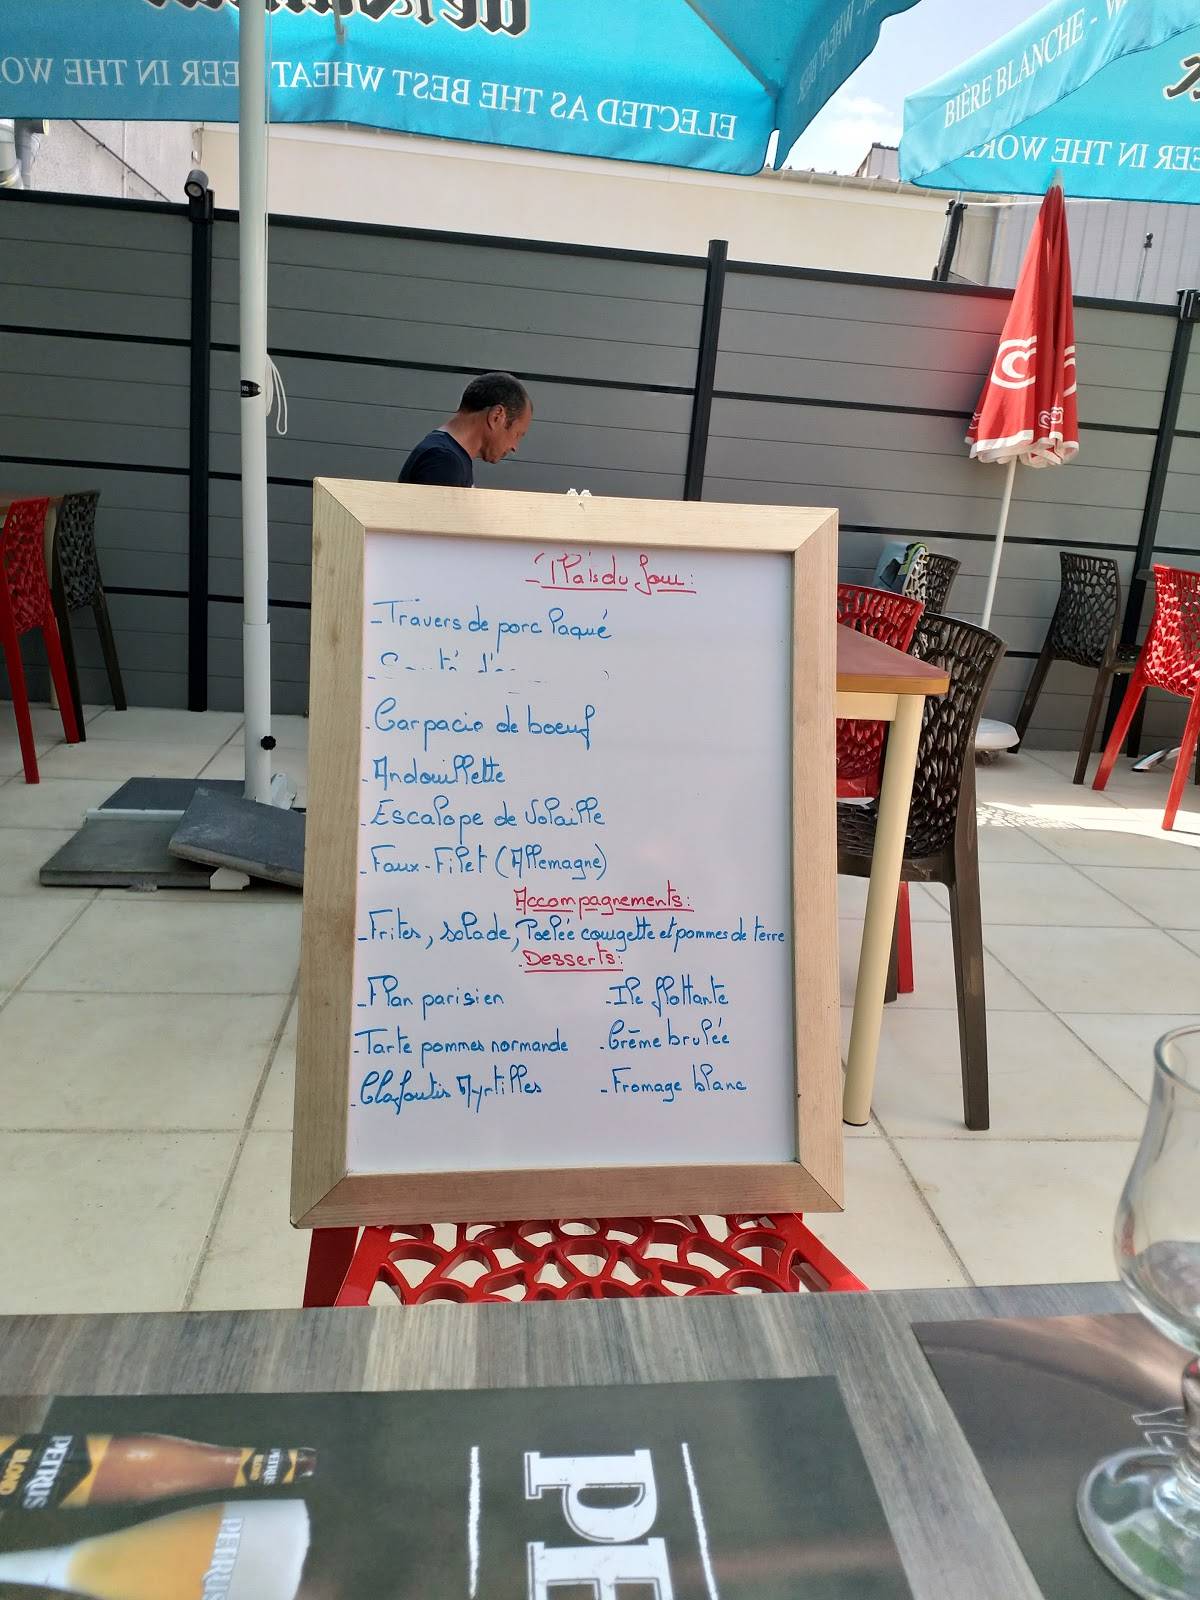 ELECTED AS THE BEST WHEAT BEER IN THE WO
WHEAT BEER
BIÈRE BLANCHE - W
EER IN THE WORL
- Plats du Jour :
- Travers de porc laqué
- Carpacio de boeuf
- Andouillette
- Escalope de Volaille
- Faux-Filet (Allemagne)
Accompagnements :
- Frites, Salade, Poelée courgette et pommes de terre
Desserts :
- Flan parisien
- Tarte pommes normande
- Clafoutis Myrtilles
- Ile flottante
- Crème brulée
- Fromage blanc
PETRUS
BLOND
PETRUS
BLOND
PETRUS
PE